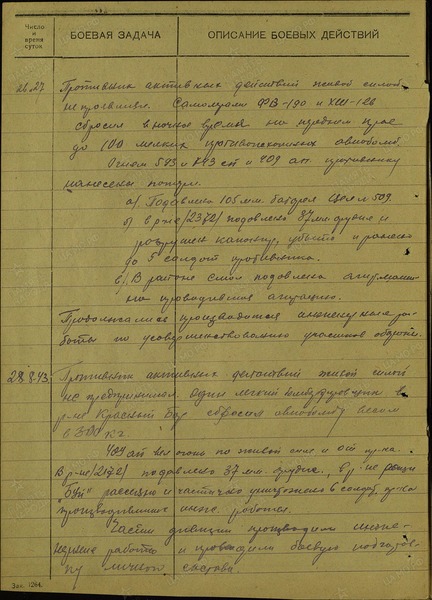 Число и время суток
БОЕВАЯ ЗАДАЧА
ОПИСАНИЕ БОЕВЫХ ДЕЙСТВИЙ
26.27
Противник активных действий живой силой
не проявлял. Самолетами ФВ-190 и ХШ-126
сбросил в ночное время на переднем крае
до 100 мелких противопехотных авиабомб.
Огнем 543 и 873 сп и 409 ап противнику
нанесены потери.
а) Подавлена 105 мм. батарея Цели № 509.
б) в р-не /2372/ подавлено 37 мм. орудие и
разрушен , убито и ранено
до 5 солдат противника.
в) В районе подавлена
на проводившая агитацию.
Продолжались производиться инженерные ра-
боты по усовершенствованию участков обороны.
28.8.43.
Противник активных действий живой силой
не предпринимал. Один легкий бомбардировщик в
р-не Красный Бор сбросил авиабомбу весом
в кг.
409 ап вел огонь по живой силе и от пр-ка.
В р-не /2172/ подавлено 37 мм. орудие, в р-не рощи
"Буй" рассеяно и частично уничтожено 6 солдат пр-ка
производивших инж. работы.
Части дивизии производили инже-
нерные работы и проводили боевую подготов-
ку личного состава.
Зак. 1264.